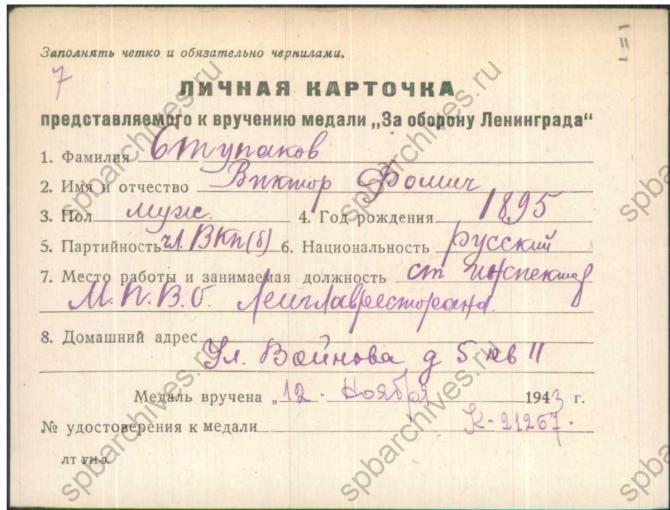 Заполнять четко и обязательно чернилами.
1=1
7
ЛИЧНАЯ КАРТОЧКА
представляемого к вручению медали „За оборону Ленинграда“
1. Фамилия Ступаков
2. Имя и отчество Виктор Фомич
3. Пол муж. 4. Год рождения 1895
5. Партийность чл. ВКП(б) 6. Национальность русский
7. Место работы и занимаемая должность ст инспектор
М.П.В.О. Ленглавресторана
8. Домашний адрес
Ул. Войнова д 5 кв 11
Медаль вручена „12. Ноября 1943 г.
№ удостоверения к медали К-21267.
ЛТ УНР.
spbarchives.ru